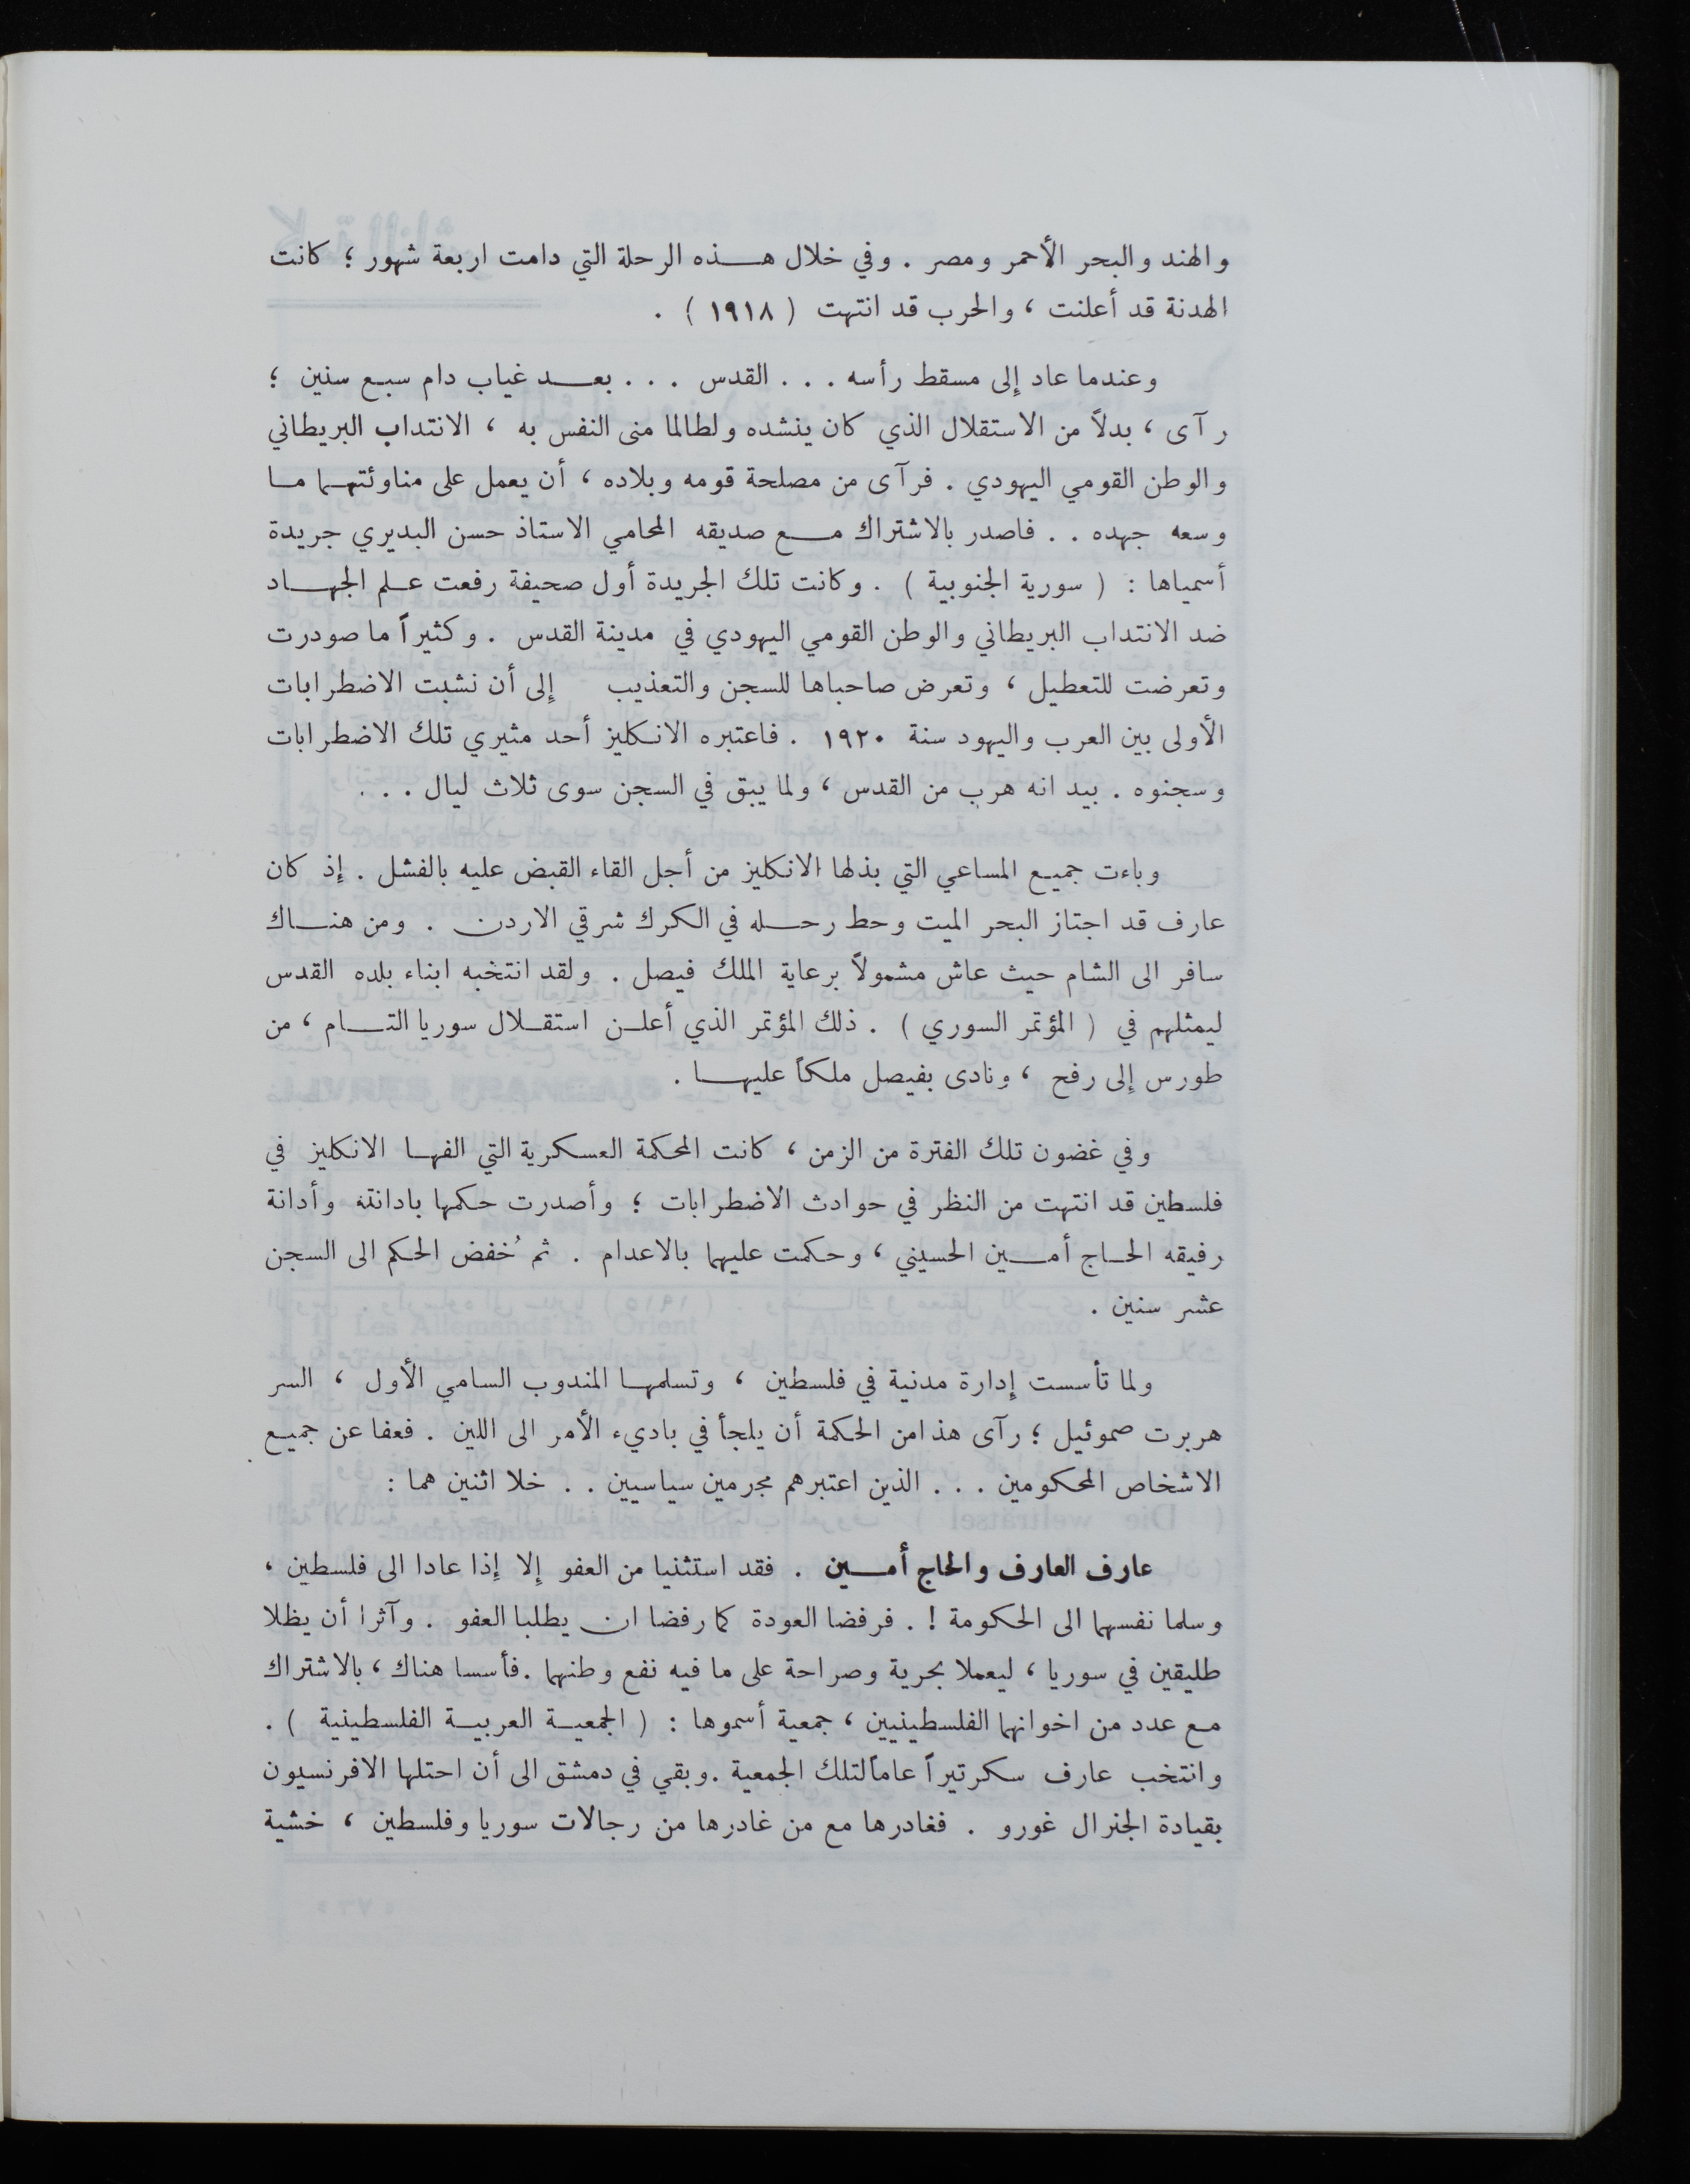 والهند والبحر الأحمر ومصر . وفي خلال هذه الرحلة التي دامت اربعة شهور ؛ كانت
الهدنة قد أعلنت ، والحرب قد انتهت ( ١٩١٨ ) .
وعندما عاد إلى مسقط رأسه . . . القدس . . . بعد غياب دام سبع سنين ؛
رآى ، بدلاً من الاستقلال الذي كان ينشده ولطالما منى النفس به ، الانتداب البريطاني
والوطن القومي اليهودي . فرآى من مصلحة قومه وبلاده ، أن يعمل على مناوئتهما ما
وسعه جهده . . فاصدر بالاشتراك مع صديقه المحامي الاستاذ حسن البديري جريدة
أسمياها : ( سورية الجنوبية ) . وكانت تلك الجريدة أول صحيفة رفعت علم الجهاد
ضد الانتداب البريطاني والوطن القومي اليهودي في مدينة القدس . وكثيراً ما صودرت
وتعرضت للتعطيل ، وتعرض صاحباها للسجن والتعذيب إلى أن نشبت الاضطرابات
الأولى بين العرب واليهود سنة ١٩٢٠ . فاعتبره الانكليز أحد مثيري تلك الاضطرابات
وسجنوه . بيد انه هرب من القدس ، ولما يبق في السجن سوى ثلاث ليال . . .
وباءت جميع المساعي التي بذلها الانكليز من أجل القاء القبض عليه بالفشل . إذ كان
عارف قد اجتاز البحر الميت وحط رحله في الكرك شرقي الاردن . ومن هناك
سافر الى الشام حيث عاش مشمولاً برعاية الملك فيصل . ولقد انتخبه ابناء بلده القدس
ليمثلهم في ( المؤتمر السوري ) . ذلك المؤتمر الذي أعلن استقلال سوريا التام ، من
طورس إلى رفح ، ونادى بفيصل ملكاً عليها .
وفي غضون تلك الفترة من الزمن ، كانت المحكمة العسكرية التي الفها الانكليز في
فلسطين قد انتهت من النظر في حوادث الاضطرابات ؛ وأصدرت حكمها بادانته وأدانة
رفيقه الحاج أمين الحسيني ، وحكمت عليهما بالاعدام . ثم خُفض الحكم الى السجن
عشر سنين .
ولما تأسست إدارة مدنية في فلسطين ، وتسلمها المندوب السامي الأول ، السر
هربرت صموئيل ؛ رآى هذا من الحكمة أن يلجأ في باديء الأمر الى اللين . فعفا عن جميع
الاشخاص المحكومين . . . الذين اعتبرهم مجرمين سياسيين . . خلا اثنين هما :
عارف العارف والحاج أمين . فقد استثنيا من العفو إلا إذا عادا الى فلسطين ،
وسلما نفسهما الى الحكومة ! . فرفضا العودة كما رفضا ان يطلبا العفو . وآثرا أن يظلا
طليقين في سوريا ، ليعملا بحرية وصراحة على ما فيه نفع وطنهما . فأسسا هناك ، بالاشتراك
مع عدد من اخوانهما الفلسطينيين ، جمعية أسموها : ( الجمعية العربية الفلسطينية ) .
وانتخب عارف سكرتيراً عاماً لتلك الجمعية . وبقي في دمشق الى أن احتلها الافرنسيون
بقيادة الجنرال غورو . فغادرها مع من غادرها من رجالات سوريا وفلسطين ، خشية